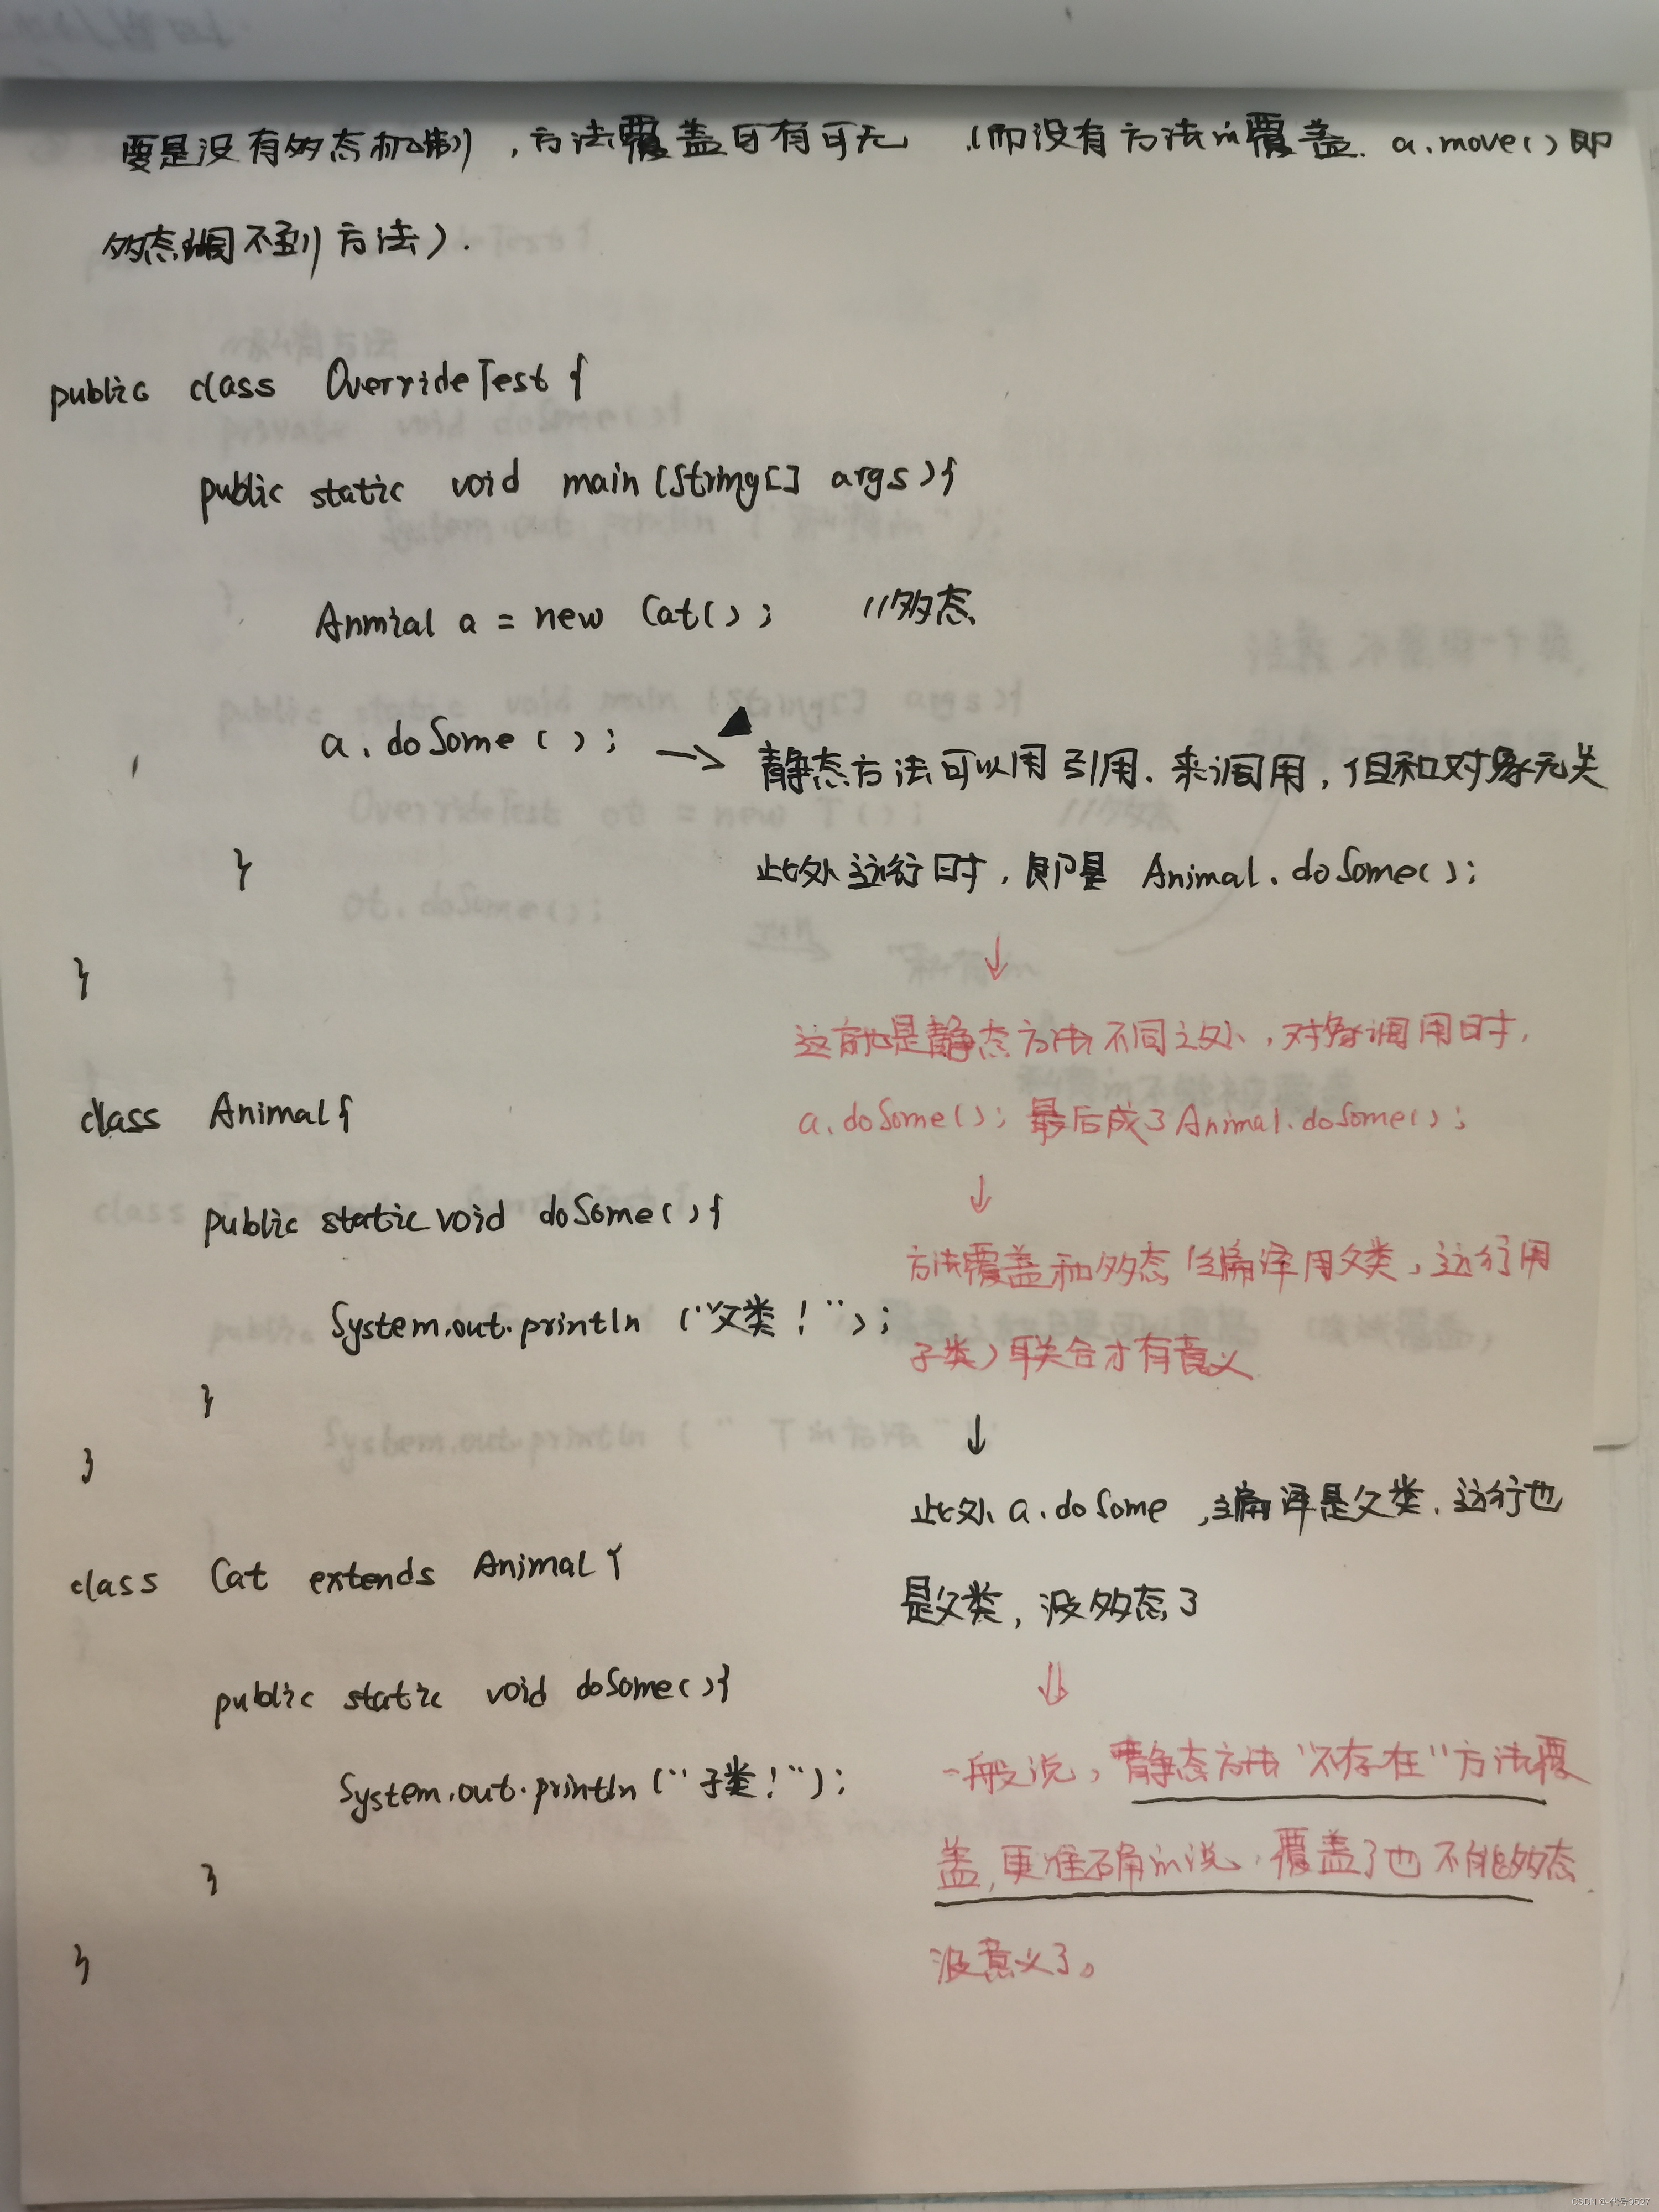 要是没有多态机制,方法覆盖可有可无 (而没有方法的覆盖. a.move()即
多态调不到方法).
public class OverrideTest{
public static void main(String[] args){
Anmial a = new Cat(); //多态
a.doSome(); → 静态方法可以用引用.来调用,但和对象无关
} 此处运行时,即是 Animal.doSome();
↓
}
这就是静态方法不同之处,对象调用时,
class Animal{
a.doSome(); 最后成了Animal.doSome();
↓
public static void doSome(){
方法覆盖和多态(编译用父类,运行用
System.out.println("父类!");
子类)联合才有意义
}
↓
}
此处 a.doSome,编译是父类.运行也
class Cat extends Animal{
是父类,没多态了
⇓
public static void doSome(){
一般说,静态方法"不存在"方法覆
System.out.println("子类!");
盖,更准确的说,覆盖了也不能多态
}
没意义了。
}
CSDN @代号9527